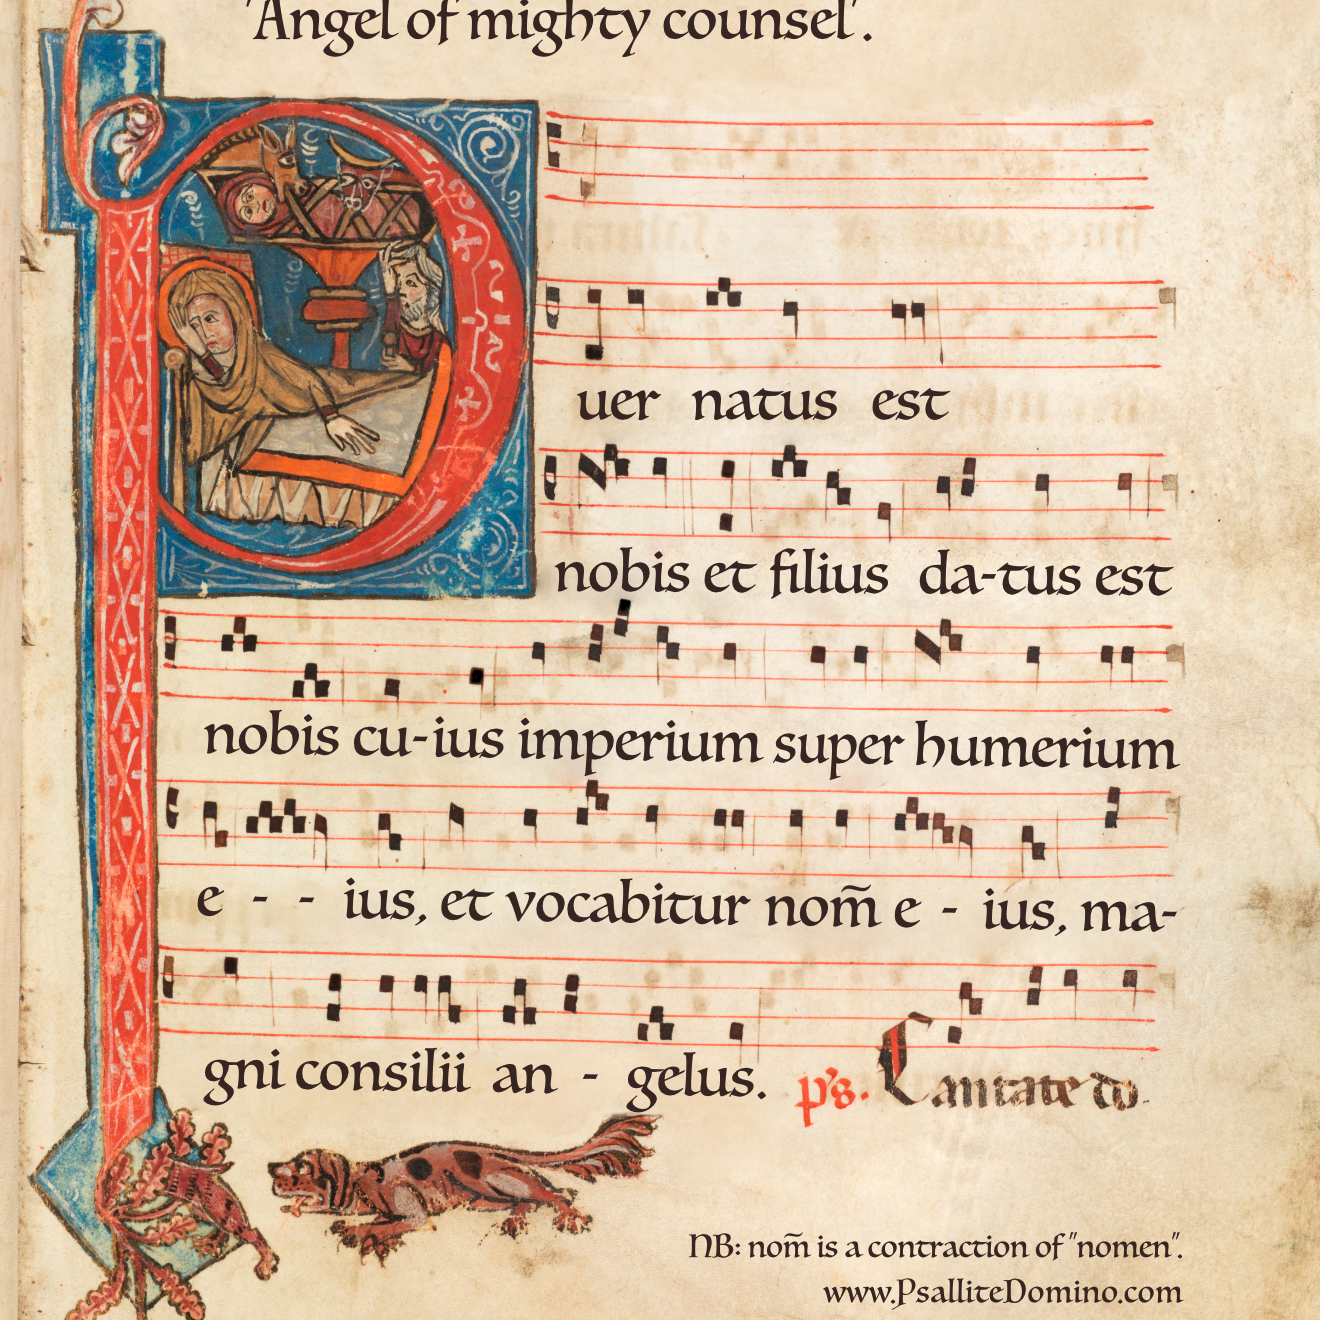 'Angel of mighty counsel'.
Puer natus est
nobis et filius da-tus est
nobis cu-ius imperium super humerium
e - - ius, et vocabitur nom̃ e - ius, ma-
gni consilii an - gelus. ps. Cantate do
NB: nom̃ is a contraction of "nomen".
www.PsalliteDomino.com